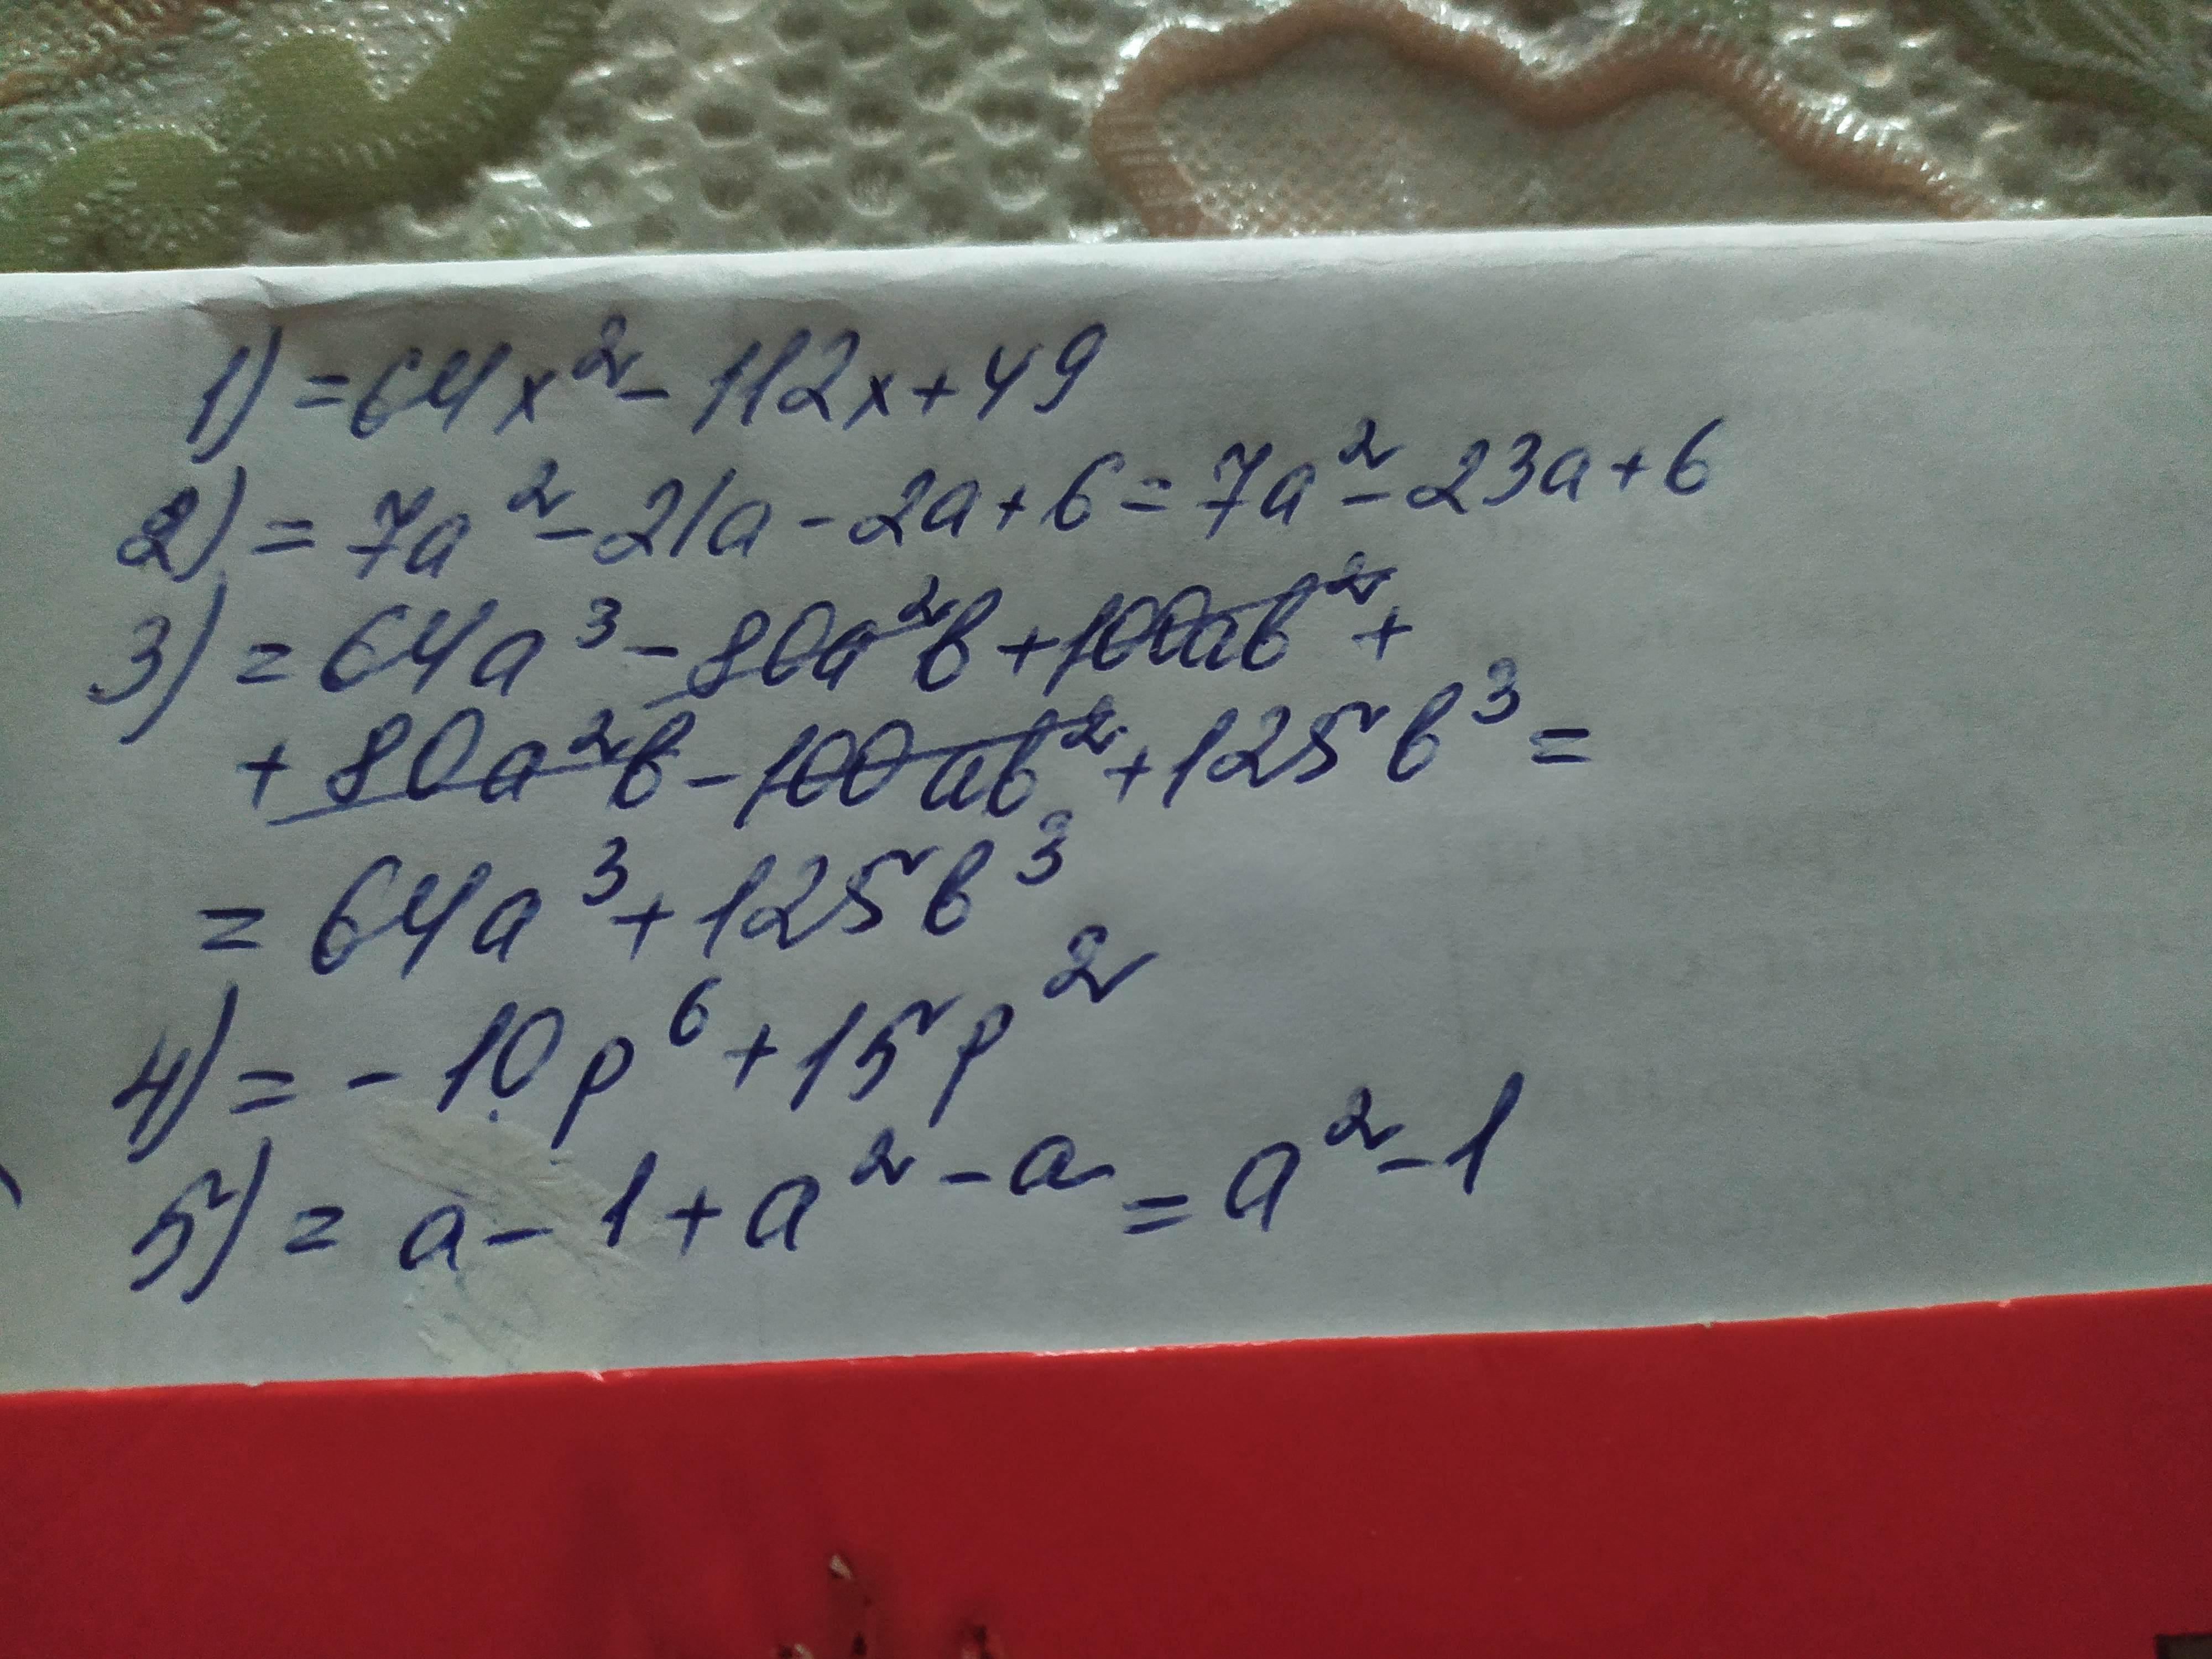 1) = 64x² - 112x + 49
2) = 7a² - 21a - 2a + 6 = 7a² - 23a + 6
3) = 64a³ - 80a²b + 100ab² +
+ 80a²b - 100ab² + 125b³ =
= 64a³ + 125b³
4) = - 10p⁶ + 15p²
5) = a - 1 + a² - a = a² - 1